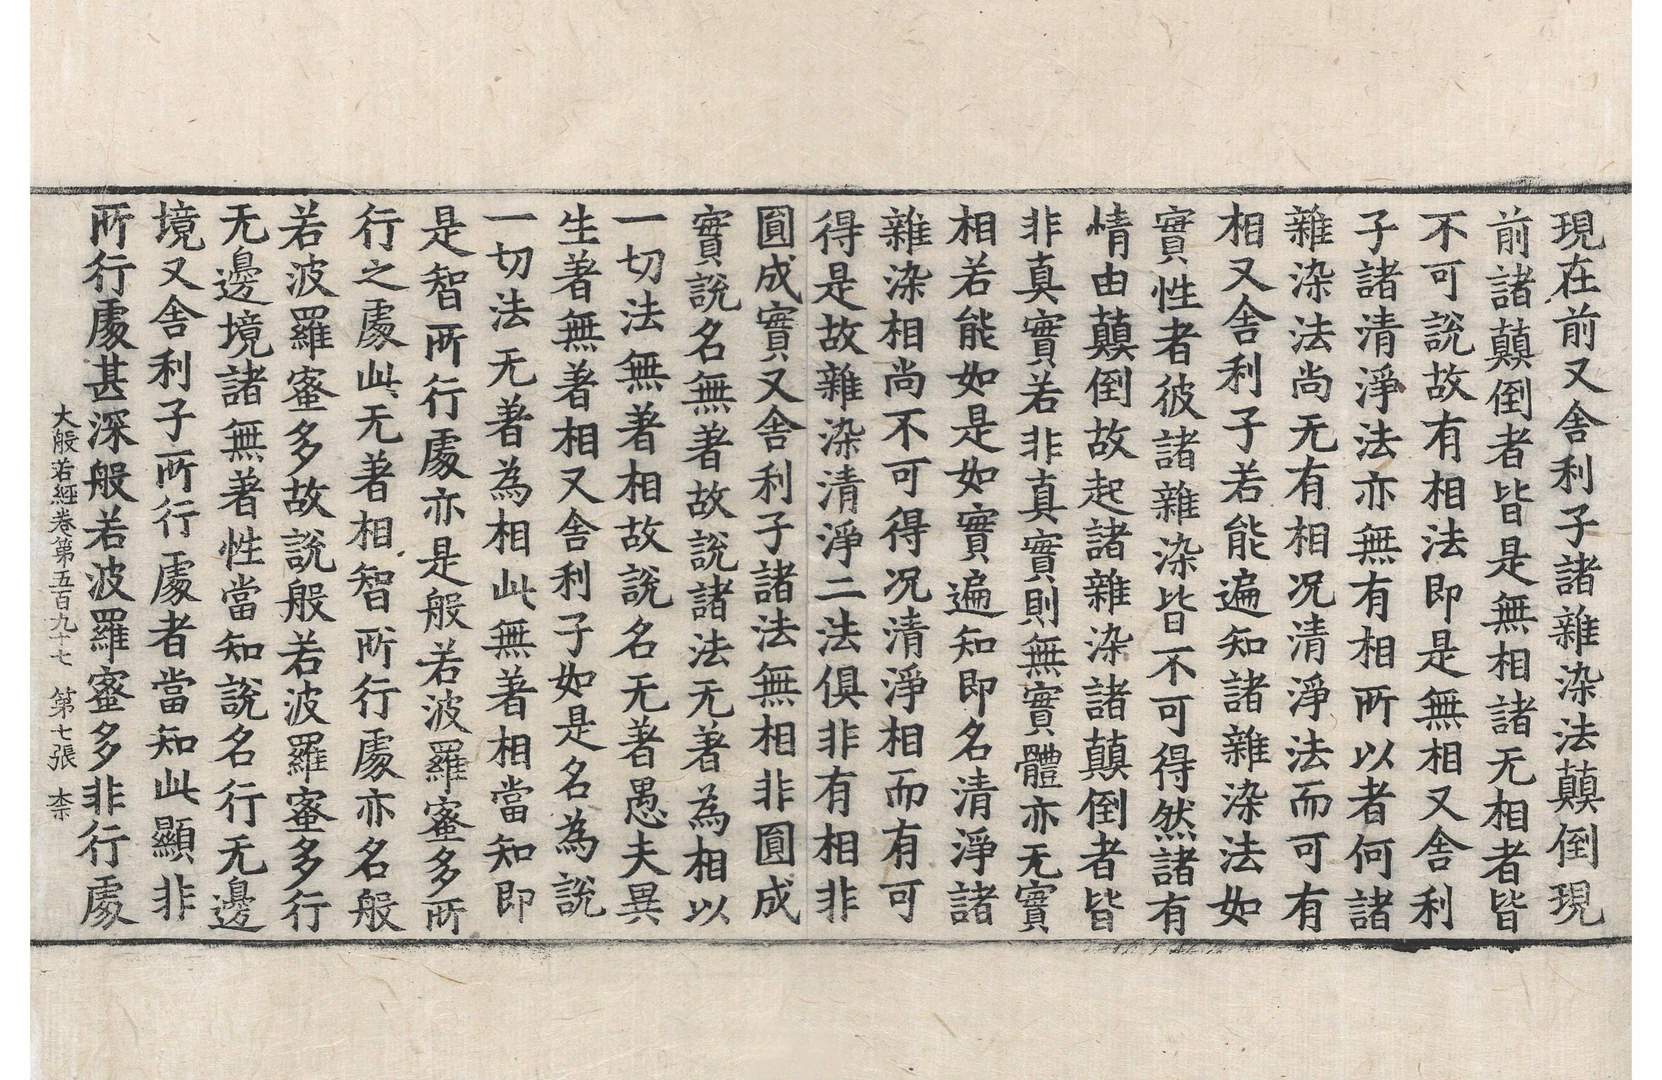 現在前又舍利子諸雜染法顛倒現
前諸顛倒者皆是無相諸无相者皆
不可說故有相法即是無相又舍利
子諸清淨法亦無有相所以者何諸
雜染法尚无有相况清淨法而可有
相又舍利子若能遍知諸雜染法如
實性者彼諸雜染皆不可得然諸有
情由顛倒故起諸雜染諸顛倒者皆
非真實若非真實則無實體亦无實
相若能如是如實遍知即名清淨諸
雜染相尚不可得况清淨相而有可
得是故雜染清淨二法俱非有相非
圓成實又舍利子諸法無相非圓成
實說名無著故說諸法无著為相以
一切法無著相故說名无著愚夫異
生著無著相又舍利子如是名為說
一切法无著為相此無著相當知即
是智所行處亦是般若波羅蜜多所
行之處此无著相智所行處亦名般
若波羅蜜多故說般若波羅蜜多行
无邊境諸無著性當知說名行无邊
境又舍利子所行處者當知此顯非
所行處甚深般若波羅蜜多非行處
大般若經卷第五百九十七 第七張 柰